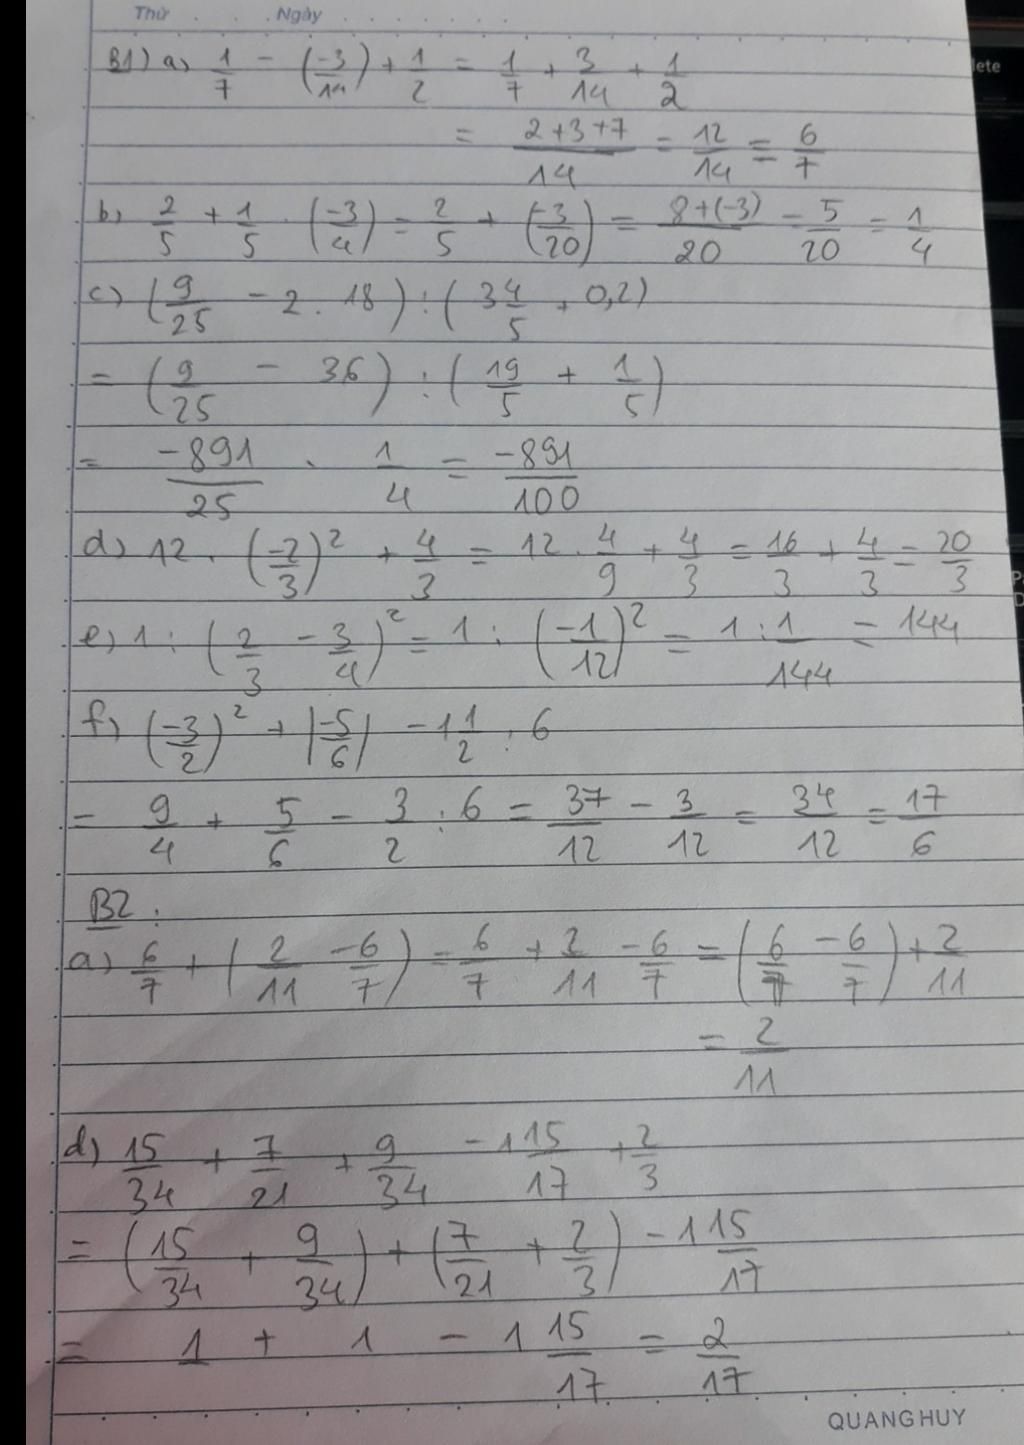 Thứ . . . . Ngày . . . . . . .
B1) a) 1/7 - (-3/14) + 1/2 = 1/7 + 3/14 + 1/2
= (2+3+7)/14 = 12/14 = 6/7
b) 2/5 + 1/5 . (-3/4) = 2/5 + (-3/20) = (8+(-3))/20 = 5/20 = 1/4
c) (9/25 - 2.18) : (3 4/5 + 0,2)
= (9/25 - 36) : (19/5 + 1/5)
= -891/25 . 1/4 = -891/100
d) 12 . (-2/3)² + 4/3 = 12 . 4/9 + 4/3 = 16/3 + 4/3 = 20/3
e) 1 : (2/3 - 3/4)² = 1 : (-1/12)² = 1 : 1/144 = 144
f) (-3/2)² + |-5/6| - 1 1/2 : 6
= 9/4 + 5/6 - 3/2 : 6 = 37/12 - 3/12 = 34/12 = 17/6
B2 :
a) 6/7 + (2/11 - 6/7) = 6/7 + 2/11 - 6/7 = (6/7 - 6/7) + 2/11
= 2/11
d) 15/34 + 7/21 + 9/34 - 1 15/17 + 2/3
= (15/34 + 9/34) + (7/21 + 2/3) - 1 15/17
= 1 + 1 - 1 15/17 = 2/17
QUANG HUY